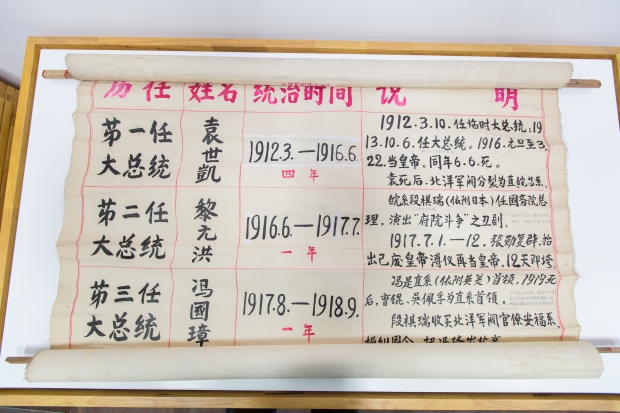 历任 姓名 统治时间 说 明
第一任
大总统
袁世凱
1912.3.—1916.6.
四年
1912.3.10.任临时大总统;19
13.10.6.任大总统。1916.元旦至3.
22.当皇帝。同年6.6.死。
袁死后,北洋军阀分裂为直皖
第二任
大总统
黎元洪
1916.6.—1917.7.
一年
皖系段祺瑞(依附日本)任国务院总
理,演出“府院斗争”之丑剧。
1917.7.1.—12.张勋复辟,抬
出己废皇帝溥仪再当皇帝,12天即垮
第三任
大总统
冯國璋
1917.8.—1918.9.
一年
冯是直系(依附英美)首领,1919死
后,曹锟、吴佩孚为直系首领。
段祺瑞收买北洋军阀官僚安福系,